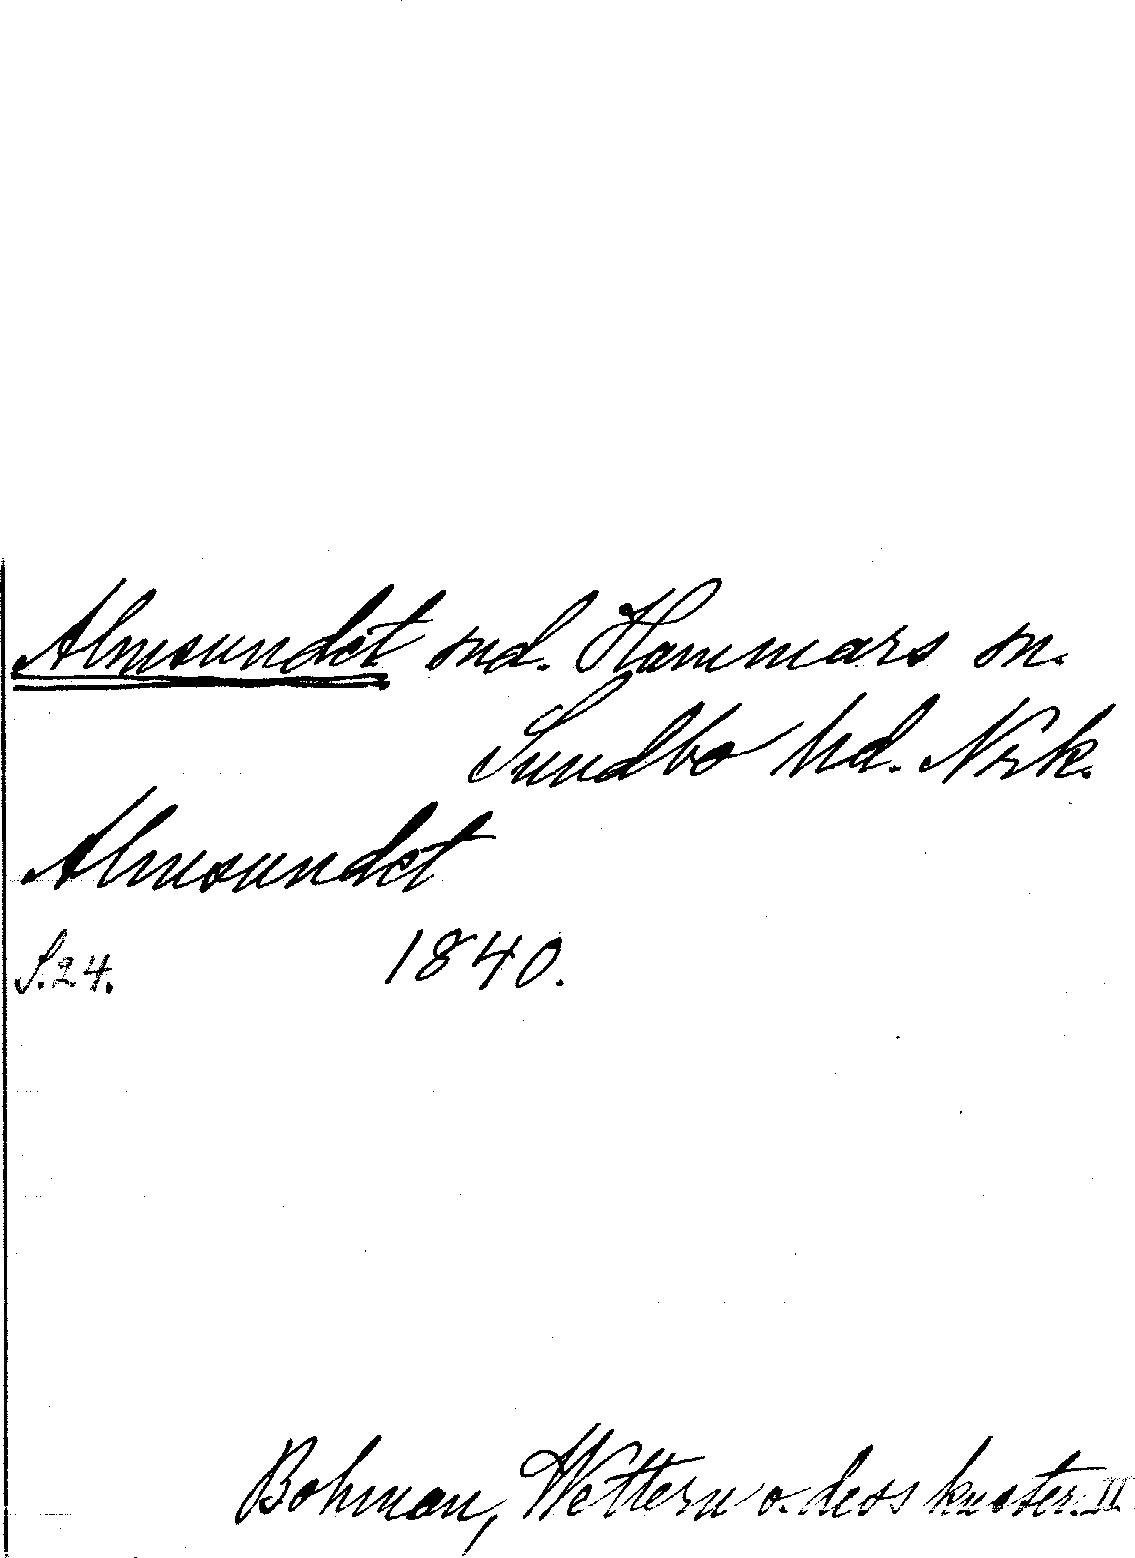 Almsundet snd. Hammars sn.
Sundbo hd. Nrk.
Almsundet
S.24. 1840.
Bohman, Wettern o. dess kuster. II